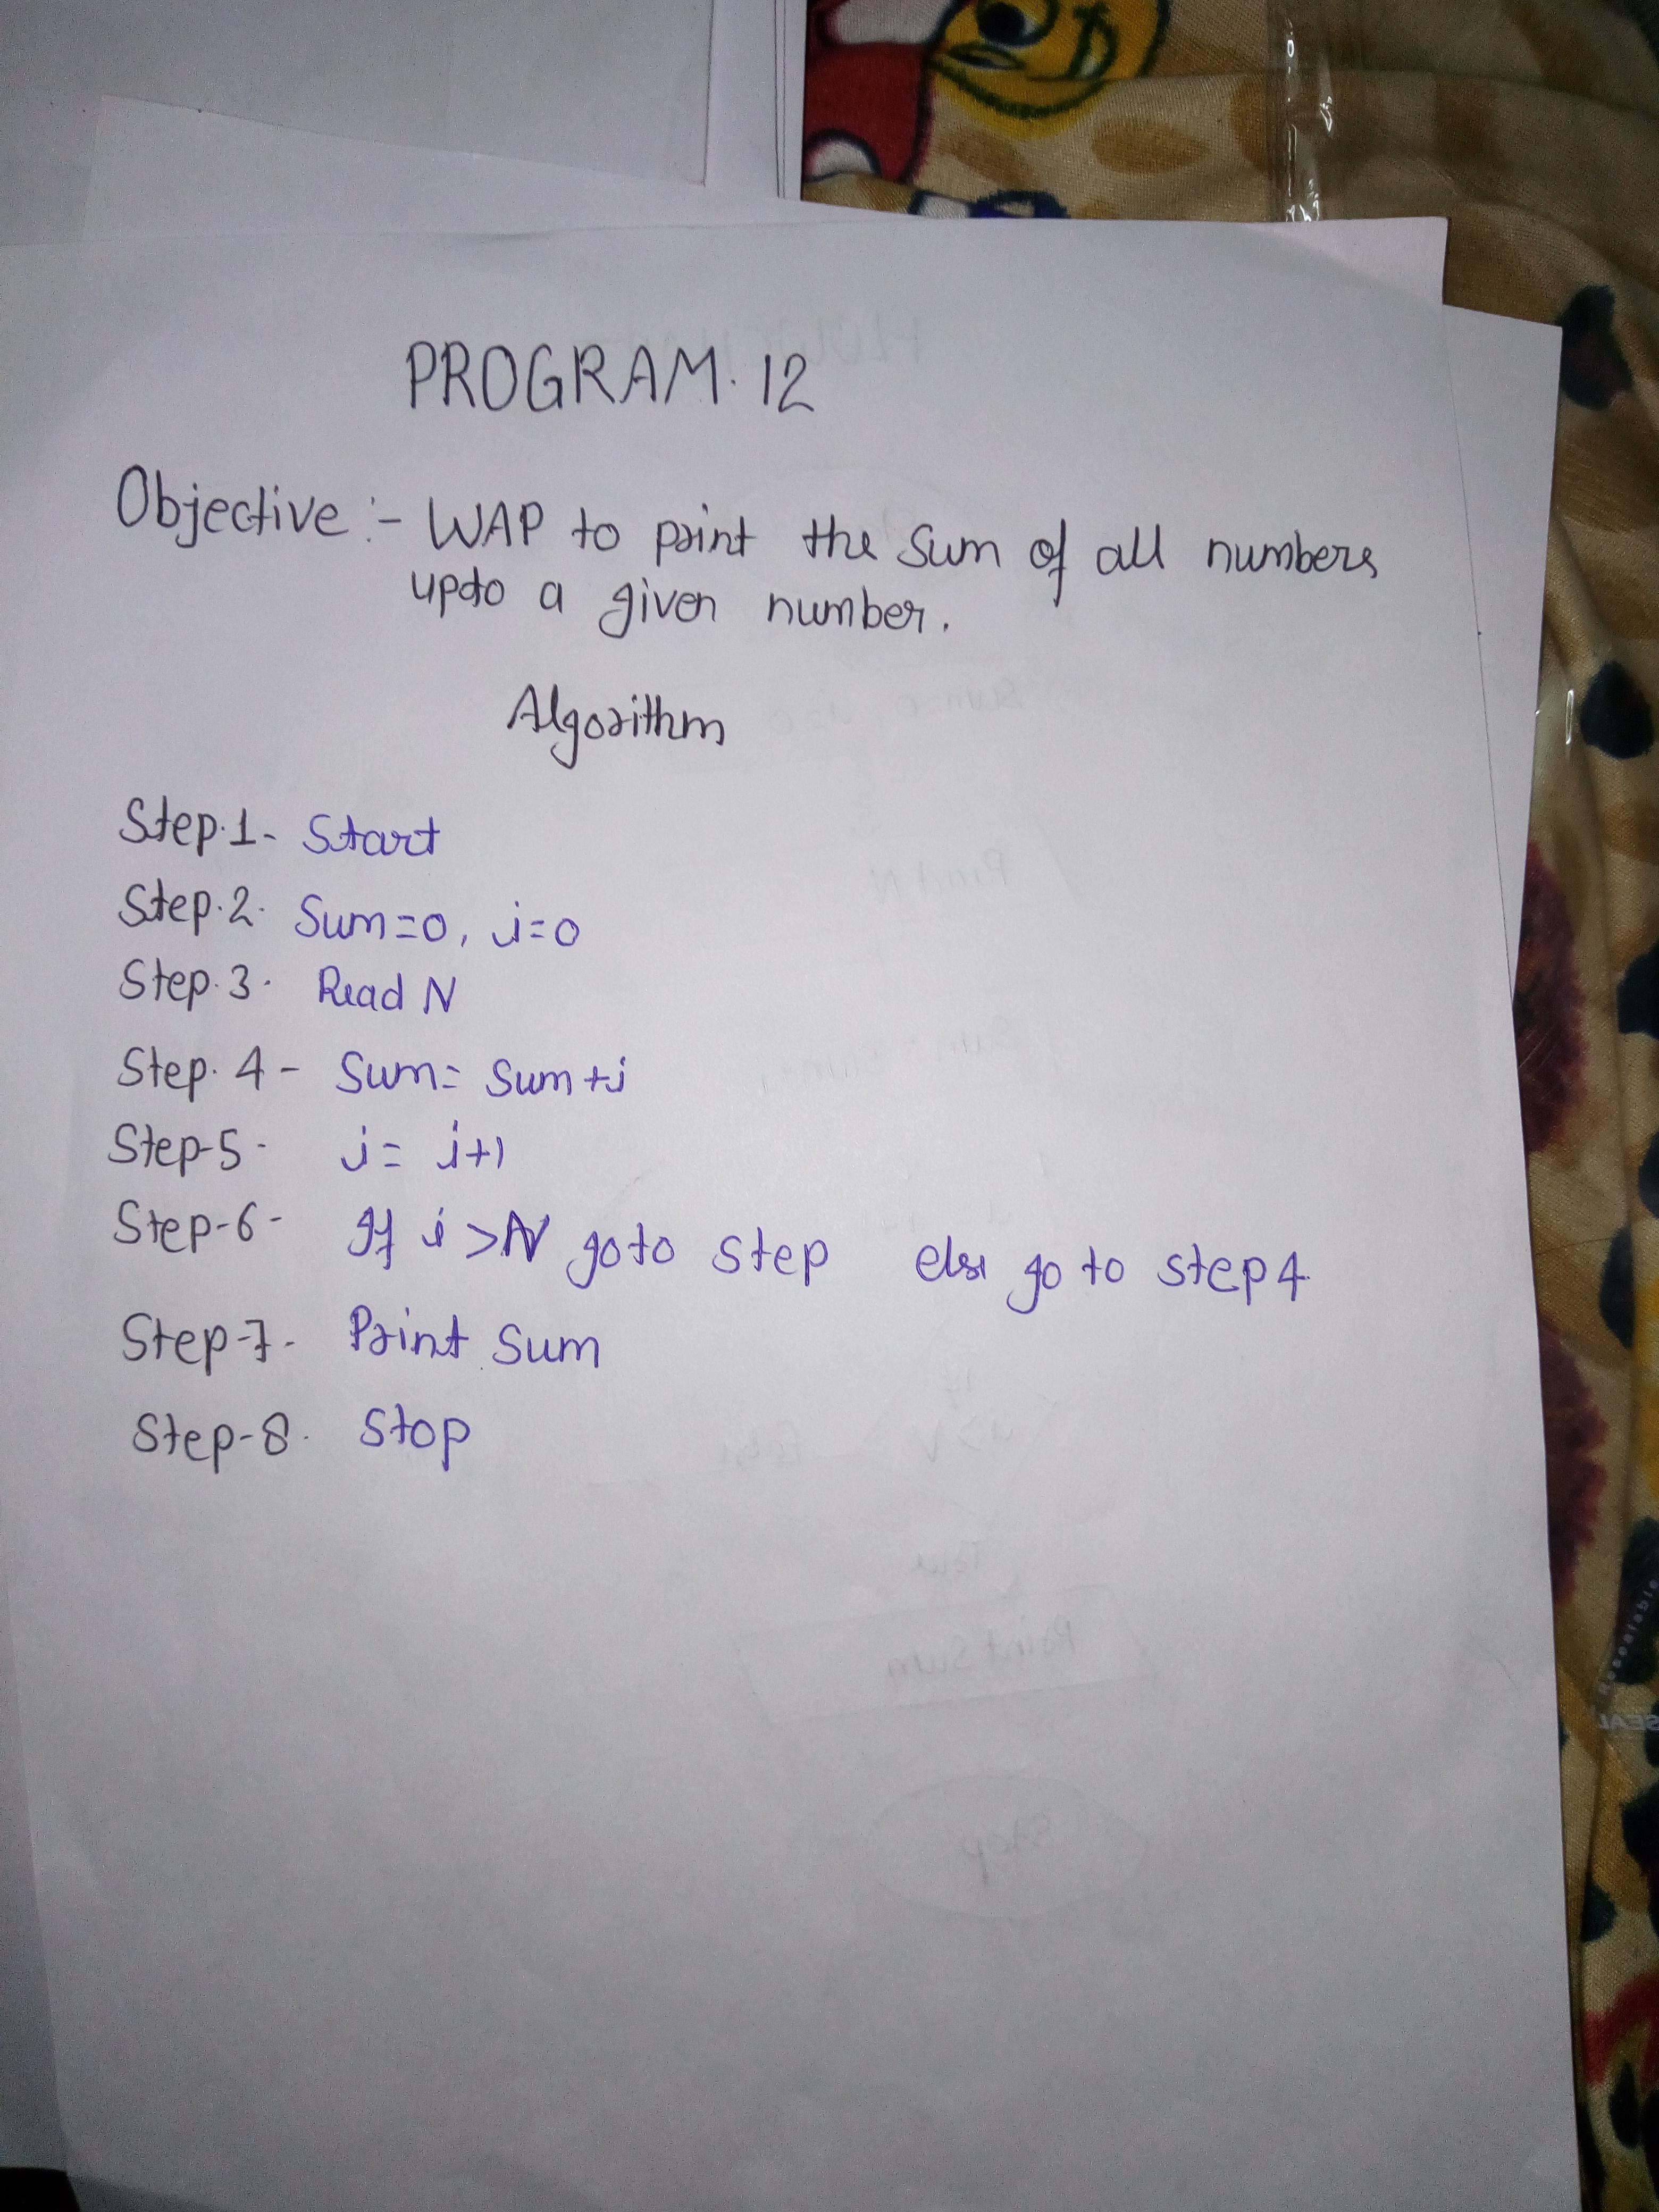 PROGRAM. 12
Objective :- WAP to print the Sum of all numbers
upto a given number.
Algorithm
Step.1- Start
Step.2. Sum=0, i=0
Step.3. Read N
Step.4- Sum= Sum+i
Step-5- i= i+1
Step-6- If i >N goto step else go to step 4
Step-7- Print Sum
Step-8. Stop
Resealable
SEAL